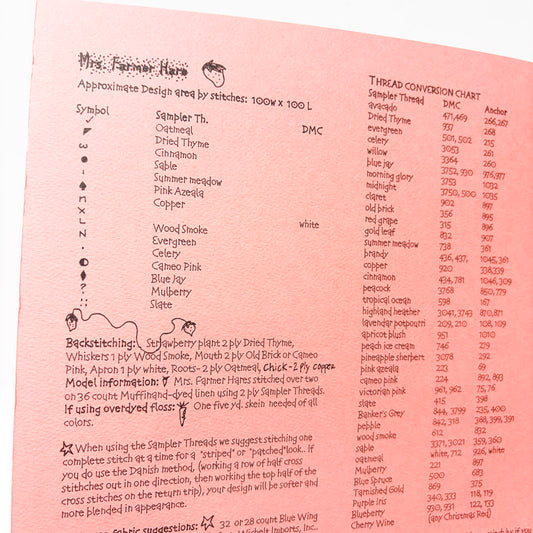 Mrs. Farmer Hare
Approximate Design area by stitches: 100w x 100 L
Symbol Sampler Th. DMC
Oatmeal
Dried Thyme
3 Cinnamon
Sable
Summer meadow
Pink Azeala
Copper
white
Wood Smoke
Evergreen
Celery
Cameo Pink
Blue Jay
? Mulberry
:: Slate
Backstitching: Strawberry plant 2 ply Dried Thyme,
Whiskers 1 ply Wood Smoke, Mouth 2 ply Old Brick or Cameo
Pink, Apron 1 ply white, Roots- 2 ply Oatmeal, Chick - 2 ply copper
Model information: Mrs. Farmer Hares stitched over two
on 36 count Muffinand-dyed linen using 2 ply Sampler Threads.
If using overdyed floss: One five yd. skein needed of all
colors.
When using the Sampler Threads we suggest stitching one
complete stitch at a time for a "striped" or "patched" look.. If
you do use the Danish method, (working a row of half cross
stithches out in one direction, then working the top half of the
cross stitches on the return trip), your design will be softer and
more blended in appearance.
fabric suggestions: 32 or 28 count Blue Wing
Wichelt Imports, Inc..
THREAD CONVERSION CHART
Sampler Thread DMC Anchor
avocado 471,469 266,267
Dried Thyme 937 268
evergreen 501, 502 215
celery 3053 261
willow 3364 260
blue jay 3752, 930 976,977
morning glory 3753 1032
midnight 3750, 500 1035
claret 902 897
old brick 356 895
red grape 315 896
gold leaf 832 907
summer meadow 738 361
brandy 436, 437 1045, 361
copper 920 338,339
cinnamon 434, 781 1046, 309
peacock 3768 850, 779
tropical ocean 598 167
highland heather 3041, 3743 870,871
lavendar potpourri 209, 210 108, 109
apricot blush 951 1010
peach ice cream 746 279
pineapple sherbert 3078 292
pink azeala 223 69
cameo pink 224 892, 893
victorian pink 961, 962 75, 76
slate 415 398
Banker's Grey 844, 3799 235, 400
pebble 842, 318 388, 399, 391
wood smoke 612 832
sable 3371, 3021 359, 360
oatmeal white, 712 926, white
Mulberry 221 897
Blue Spruce 500 683
Tarnished Gold 869 375
Purple Iris 340, 333 118, 119
Blueberry 930, 931 122, 133
Cherry Wine (any Christmas Red)